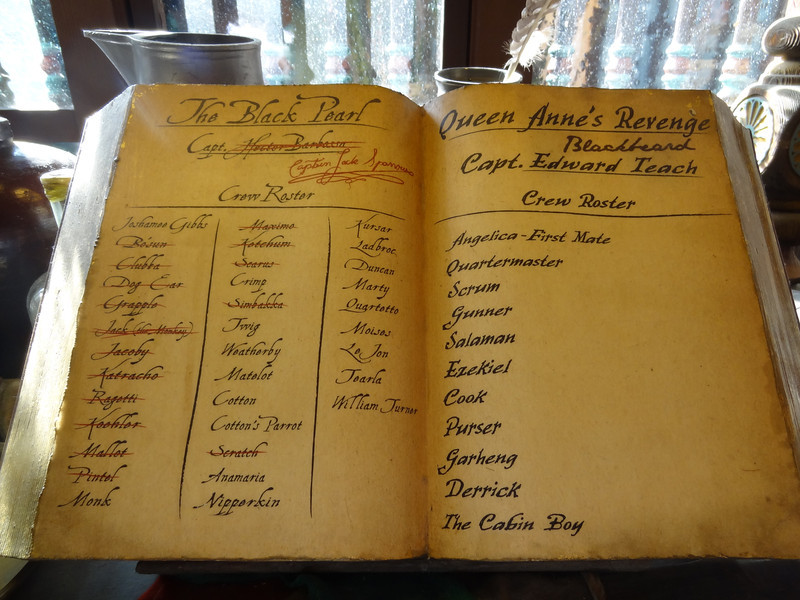 The Black Pearl
Capt. Hector Barbossa
Captain Jack Sparrow
Crew Roster
Joshamee Gibbs
Bo'sun
Clubba
Dog Ear
Grapple
Jack (the Monkey)
Jacoby
Katracho
Ragetti
Koehler
Mallot
Pintel
Monk
Maximo
Ketchum
Scarus
Crimp
Simbakka
Twig
Weatherby
Matelot
Cotton
Cotton's Parrot
Scratch
Anamaria
Nipperkin
Kursar
Ladbroc
Duncan
Marty
Quartetto
Moises
Le Jon
Tearla
William Turner
Queen Anne's Revenge
Blackbeard
Capt. Edward Teach
Crew Roster
Angelica - First Mate
Quartermaster
Scrum
Gunner
Salaman
Ezekiel
Cook
Purser
Garheng
Derrick
The Cabin Boy